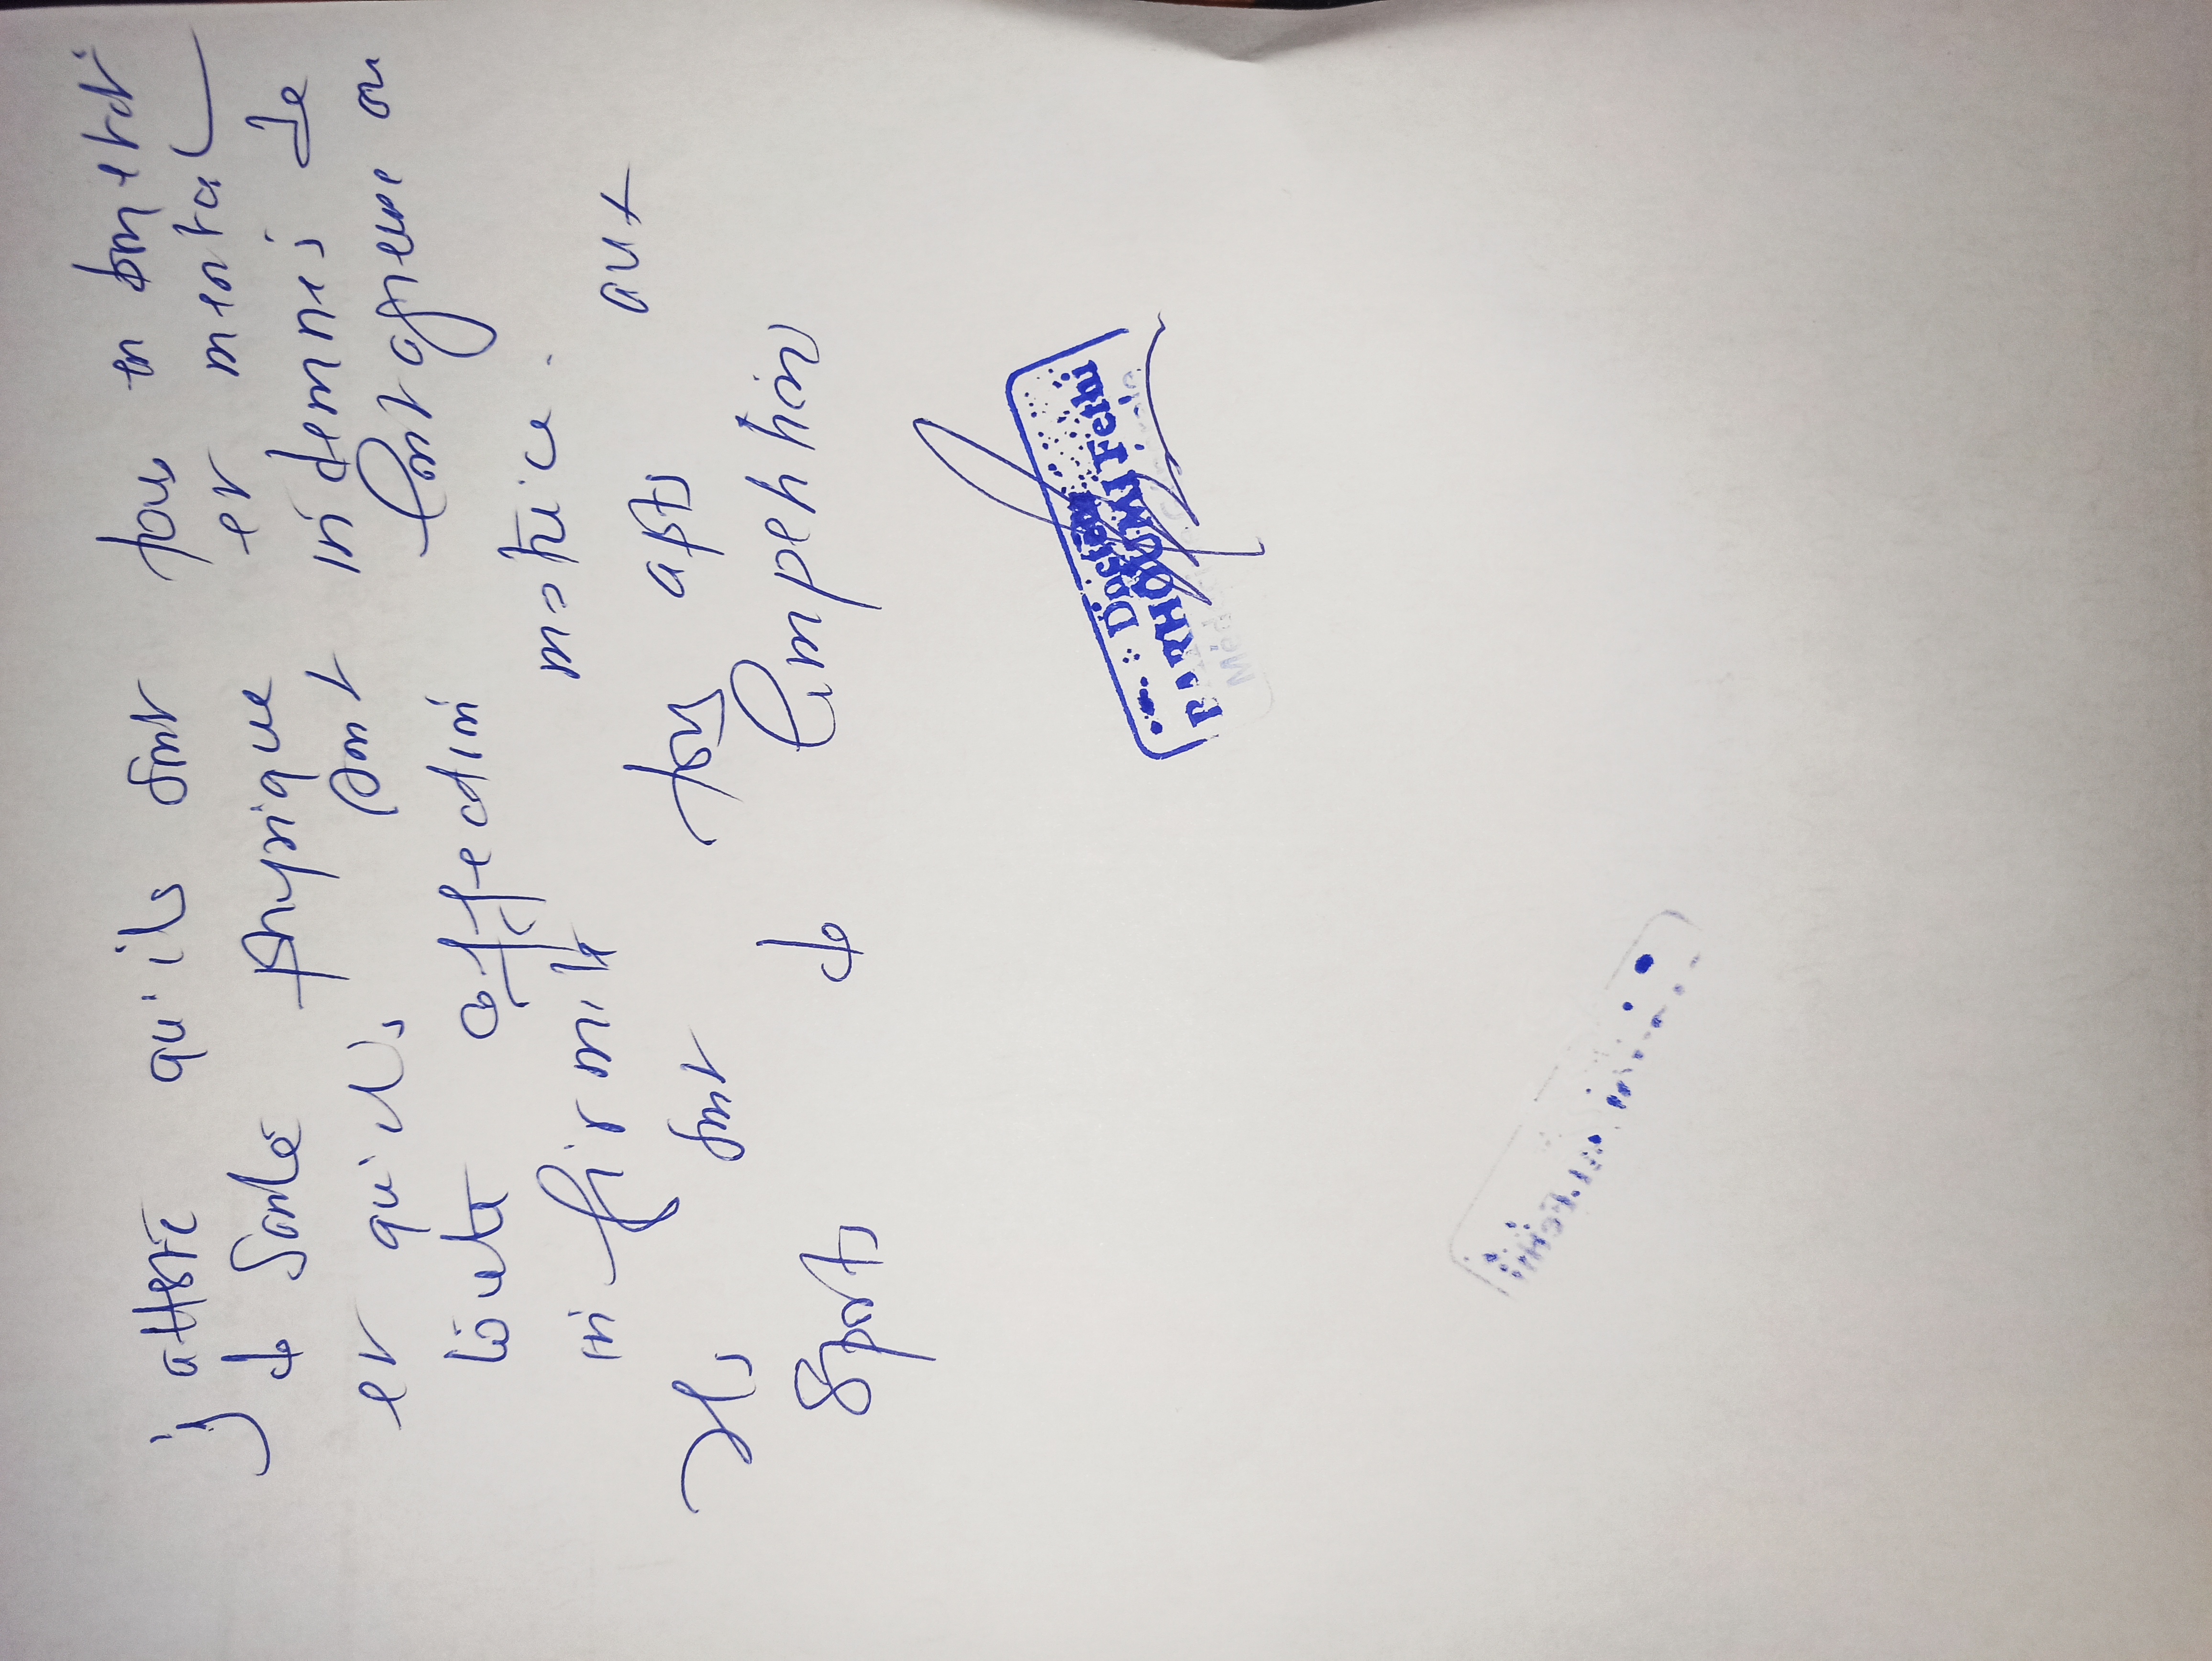 j atteste qu'ils sont pour en bon etat
de Santé physique et mental
et qu'ils sont indemnes de
toute affection contagieuse ou
infirmité motrice.
Ils sont pas apts aux
Sports de Competition
Docteur
BARHOUMI Fethi